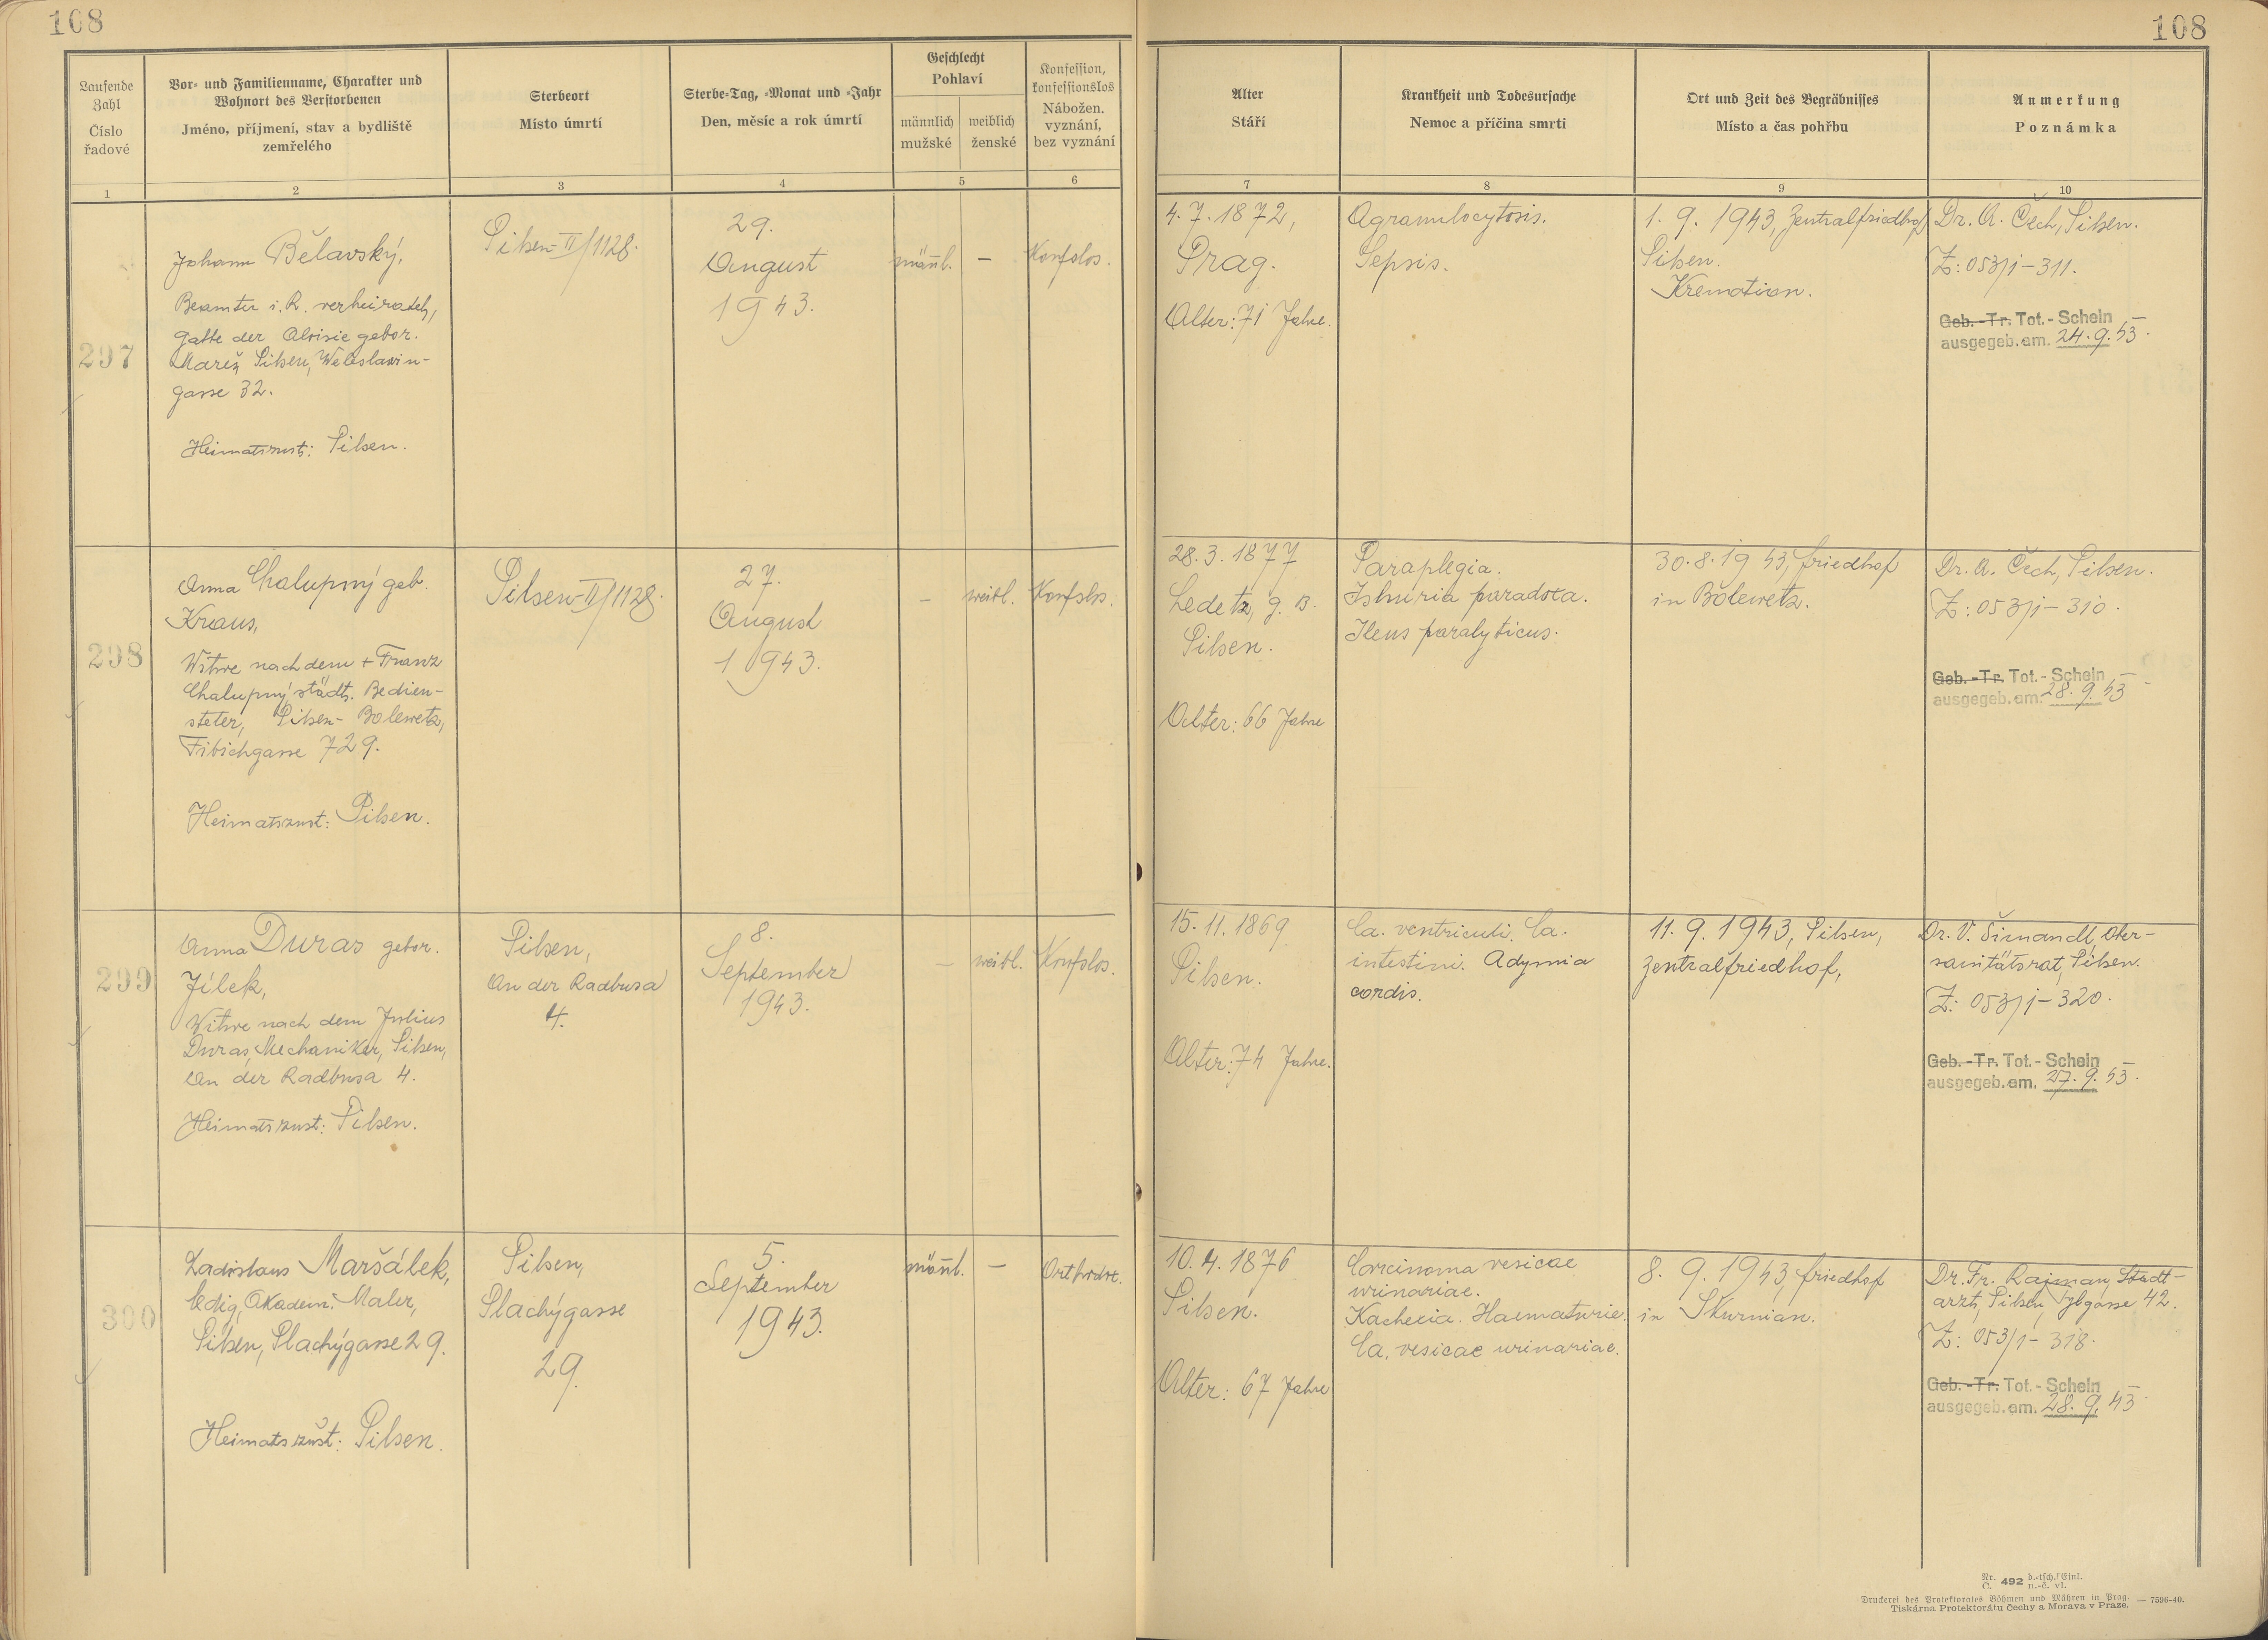 108
108
Laufende Zahl
Číslo řadové
Vor- und Familienname, Charakter und
Wohnort des Verstorbenen
Jméno, příjmení, stav a bydliště
zemřelého
Sterbeort
Místo úmrtí
Sterbe-Tag, -Monat und -Jahr
Den, měsíc a rok úmrtí
Geschlecht
Pohlaví
männlich
mužské
weiblich
ženské
Konfession,
konfessionslos
Nábožen.
vyznání,
bez vyznání
Alter
Stáří
Krankheit und Todesursache
Nemoc a příčina smrti
Ort und Zeit des Begräbnisses
Místo a čas pohřbu
Anmerkung
Poznámka
1 2 3 4 5 6 7 8 9 10
297
Johann Bělavský,
Beamter i. R. verheiratet,
Gatte der Aloisie gebor.
Mareš, Pilsen, Weleslawin-
gasse 32.
Heimatszust: Pilsen.
Pilsen-II/1128.
29.
August
1943.
männl.
—
Konfslos.
4. 7. 1872,
Prag.
Alter: 71 Jahre.
Agranulocytosis.
Sepsis.
1. 9. 1943, Zentralfriedhof
Pilsen.
Kremation.
Dr. A. Čech, Pilsen.
Z: 053/1-311.
Geb. -Tr. Tot.- Schein
ausgegeb.am. 24. 9. 43.
298
Anna Chalupný geb.
Kraus,
Witwe nach dem + Franz
Chalupný städt. Bedien-
steter, Pilsen-Bolewetz,
Fibichgasse 729.
Heimatszust: Pilsen.
Pilsen-II/1128.
27.
August
1943.
—
weibl.
Konfslos.
28. 3. 1877
Ledetz, g. B.
Pilsen.
Alter: 66 Jahre
Paraplegia.
Ishuria paradoxa.
Ileus paralyticus.
30. 8. 1943, Friedhof
in Bolewetz.
Dr. A. Čech, Pilsen.
Z: 053/1-310.
Geb. -Tr. Tot.- Schein
ausgegeb.am. 28. 9. 43
299
Anna Duras gebor.
Jílek,
Witwe nach dem Julius
Duras, Mechaniker, Pilsen,
An der Radbusa 4.
Heimatszust: Pilsen.
Pilsen,
An der Radbusa
4.
8.
September
1943.
—
weibl.
Konfslos.
15. 11. 1869
Pilsen.
Alter: 74 Jahre.
Ca. ventriculi. Ca.
intestini. Adynmia
cordis.
11. 9. 1943, Pilsen,
Zentralfriedhof,
Dr. V. Šimandl, Ober-
sanitätsrat, Pilsen.
Z: 053/1-320.
Geb. -Tr. Tot.- Schein
ausgegeb.am. 27. 9. 43.
300
Ladislaus Maršálek,
ledig, Akadem. Maler,
Pilsen, Plachýgasse 29.
Heimatszust: Pilsen.
Pilsen,
Plachýgasse
29.
5.
September
1943.
männl.
—
Orthodox.
10. 4. 1876
Pilsen.
Alter: 67 Jahre
Carcinoma vesicae
urinariae.
Kachexia. Haematurie.
Ca. vesicae urinariae.
8. 9. 1943, Friedhof
in Skurnian.
Dr. Fr. Rajman, Stadt-
arzt, Pilsen, 42.
Z: 053/1-318.
Geb. -Tr. Tot.- Schein
ausgegeb.am. 28. 9. 43
Nr. Č. 492 d.-tsch. Einl. n.-č. vl.
Druckerei des Protektorates Böhmen und Mähren in Prag. — 7596-40.
Tiskárna Protektorátu Čechy a Morava v Praze.